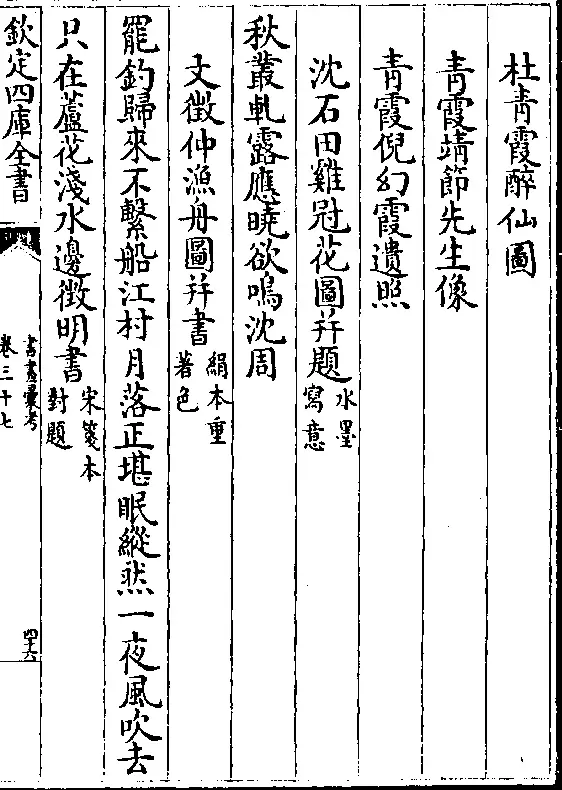 杜青霞醉仙圖
青霞靖節先生像
青霞倪幻霞遺照
沈石田雞冠花圖并題水墨寫意
秋叢軋露應曉欲鳴沈周
文徵仲漁舟圖并書絹本重著色
罷釣歸來不繫船江村月落正堪眠縱然一夜風吹去
只在蘆花淺水邊徵明書宋箋本對題
欽定四庫全書
書畫彙考
卷三十七
四十六